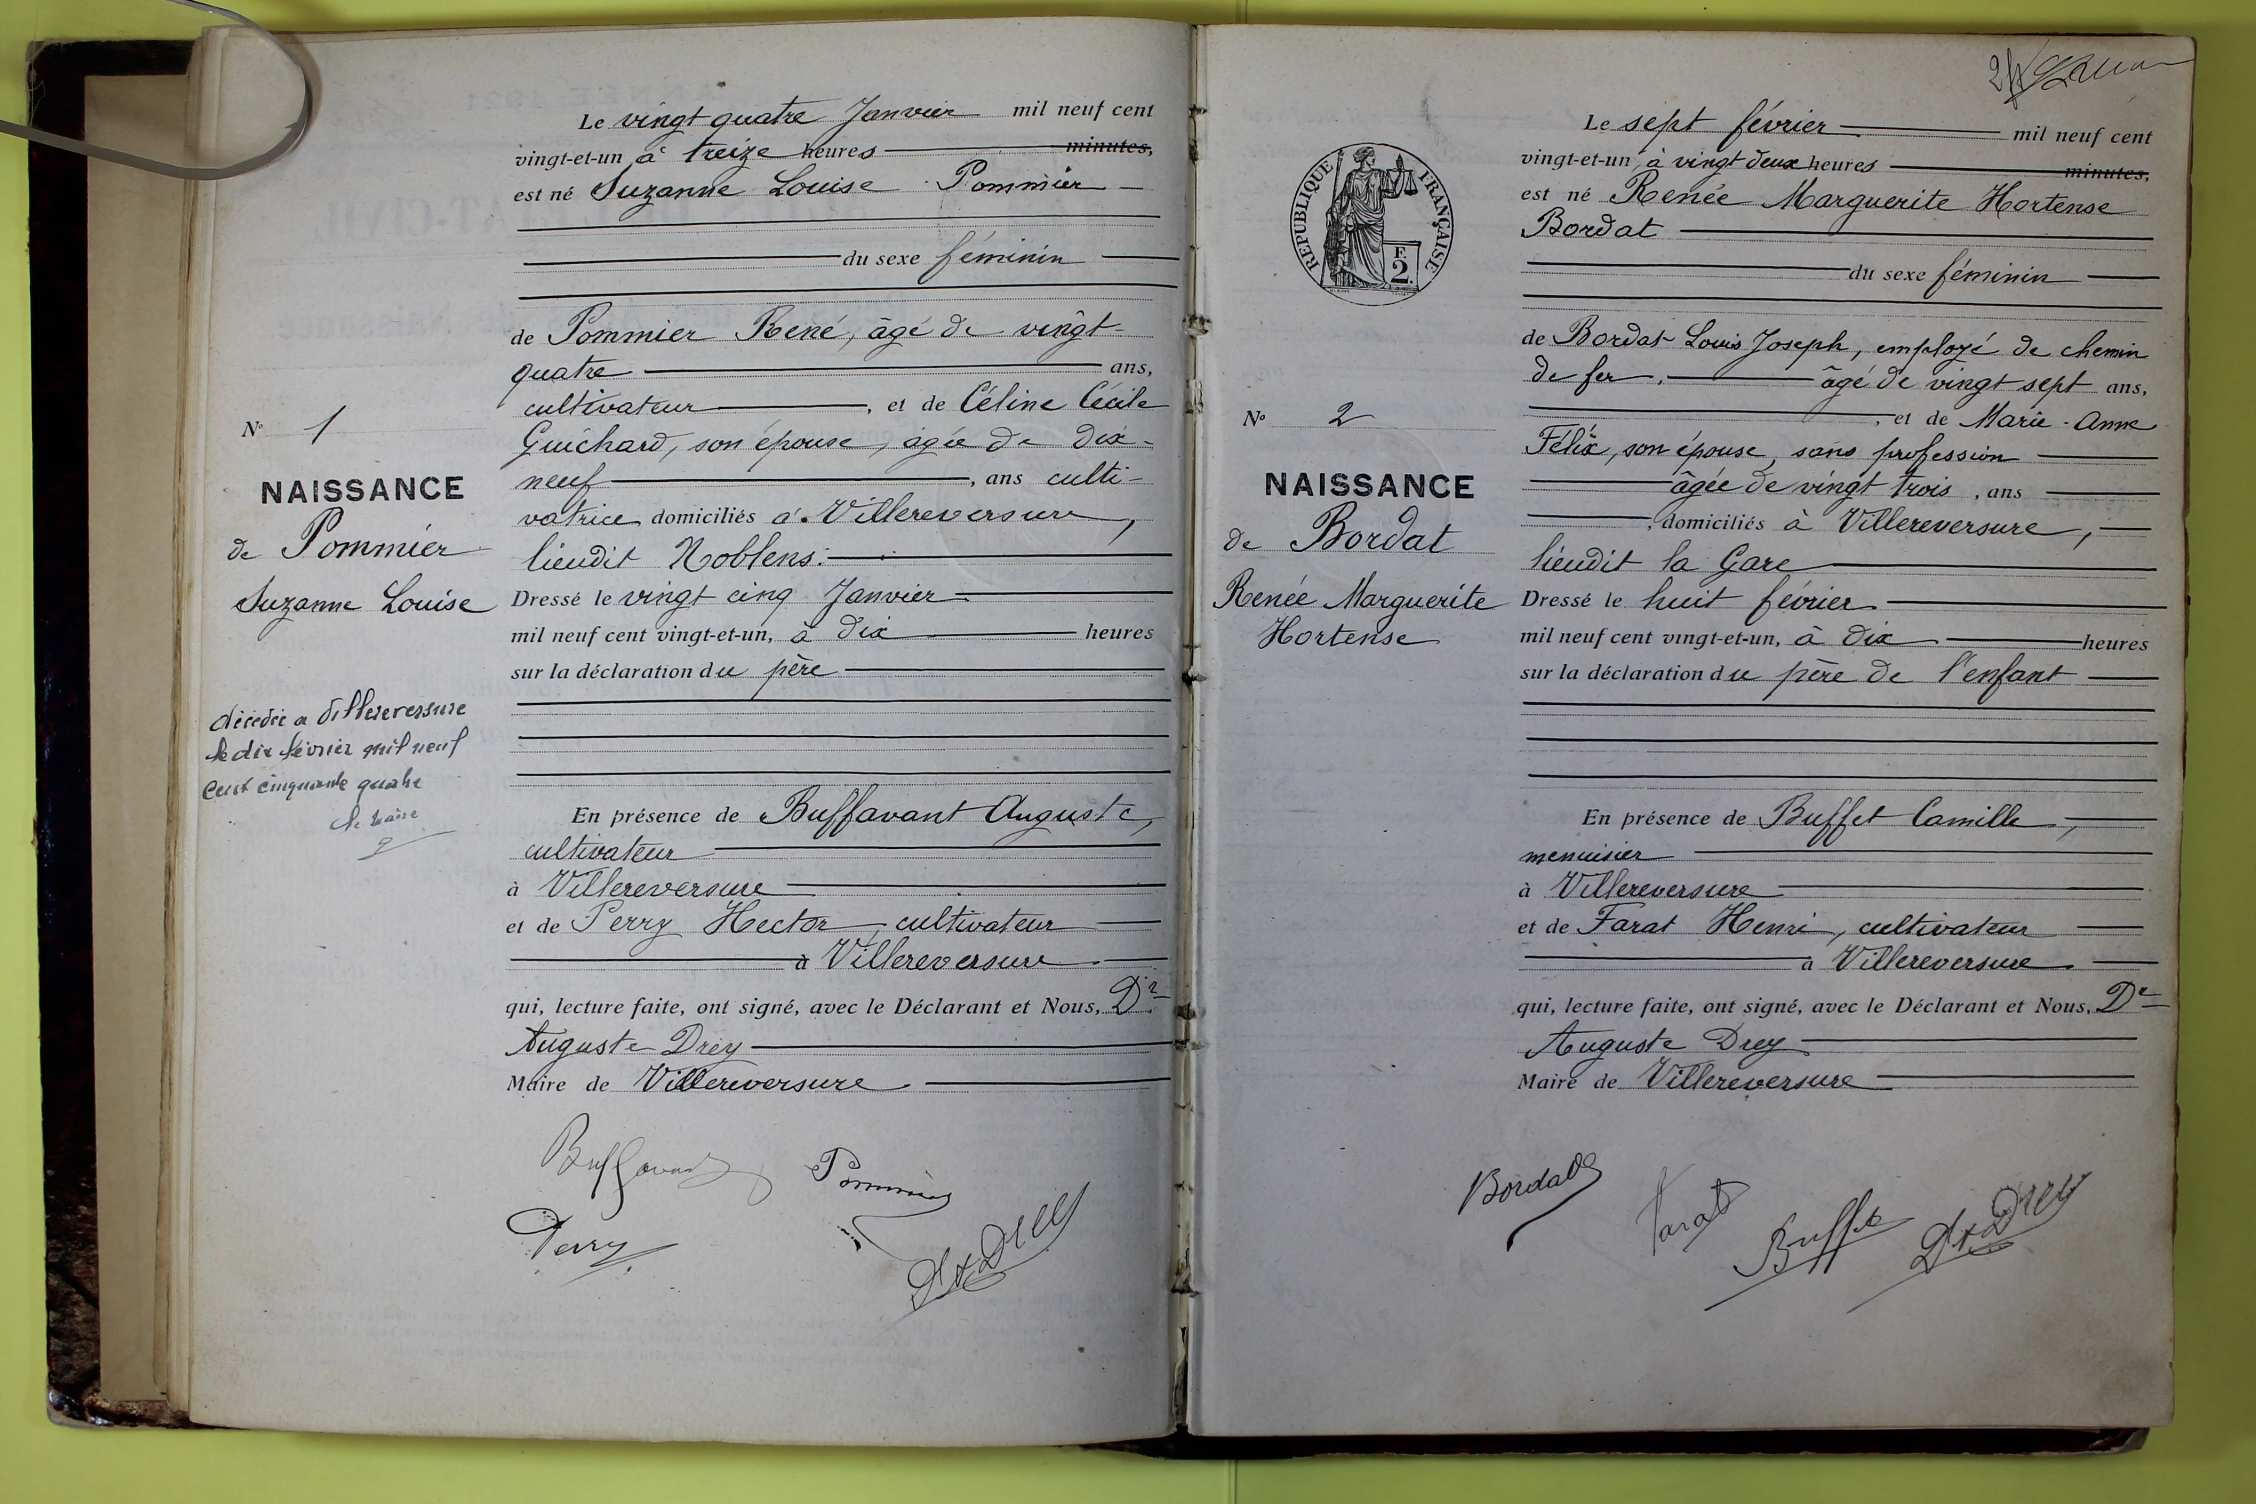 Le vingt quatre Janvier mil neuf cent
vingt-et-un à treize heures minutes,
est né Suzanne Louise Pommier
du sexe féminin
de Pommier René, âgé de vingt-
quatre ans,
cultivateur, et de Céline Cécile
Guichard, son épouse, âgée de dix-
neuf, ans culti-
vatrice domiciliés à Villereversure,
lieudit Noblens.
Dressé le vingt cinq Janvier
mil neuf cent vingt-et-un, à dix heures
sur la déclaration du père
En présence de Buffavant Auguste,
cultivateur
à Villereversure
et de Perry Hector, cultivateur
à Villereversure
qui, lecture faite, ont signé, avec le Déclarant et Nous, Dr
Auguste Drey
Maire de Villereversure
Buffavand Pommier
Perry Dr A Drey
N° 1
NAISSANCE
de Pommier
Suzanne Louise
décédée a Villereversure
le dix février mil neuf
cent cinquante quatre
le maire
2
Le sept février mil neuf cent
vingt-et-un, à vingt deux heures minutes,
est né Renée Marguerite Hortense
Bordat
du sexe féminin
de Bordat Louis Joseph, employé de chemin
de fer, âgé de vingt sept ans,
, et de Marie-Anne
Félix, son épouse, sans profession
âgée de vingt trois, ans
, domiciliés à Villereversure,
lieudit la Gare
Dressé le huit février
mil neuf cent vingt-et-un, à dix heures
sur la déclaration du père de l'enfant
En présence de Buffet Camille,
menuisier
à Villereversure
et de Farat Henri, cultivateur
à Villereversure
qui, lecture faite, ont signé, avec le Déclarant et Nous, Dr
Auguste Drey
Maire de Villereversure
Bordat Farat Buffet Dr A Drey
RÉPUBLIQUE FRANÇAISE
F.
2.
N° 2
NAISSANCE
de Bordat
Renée Marguerite
Hortense